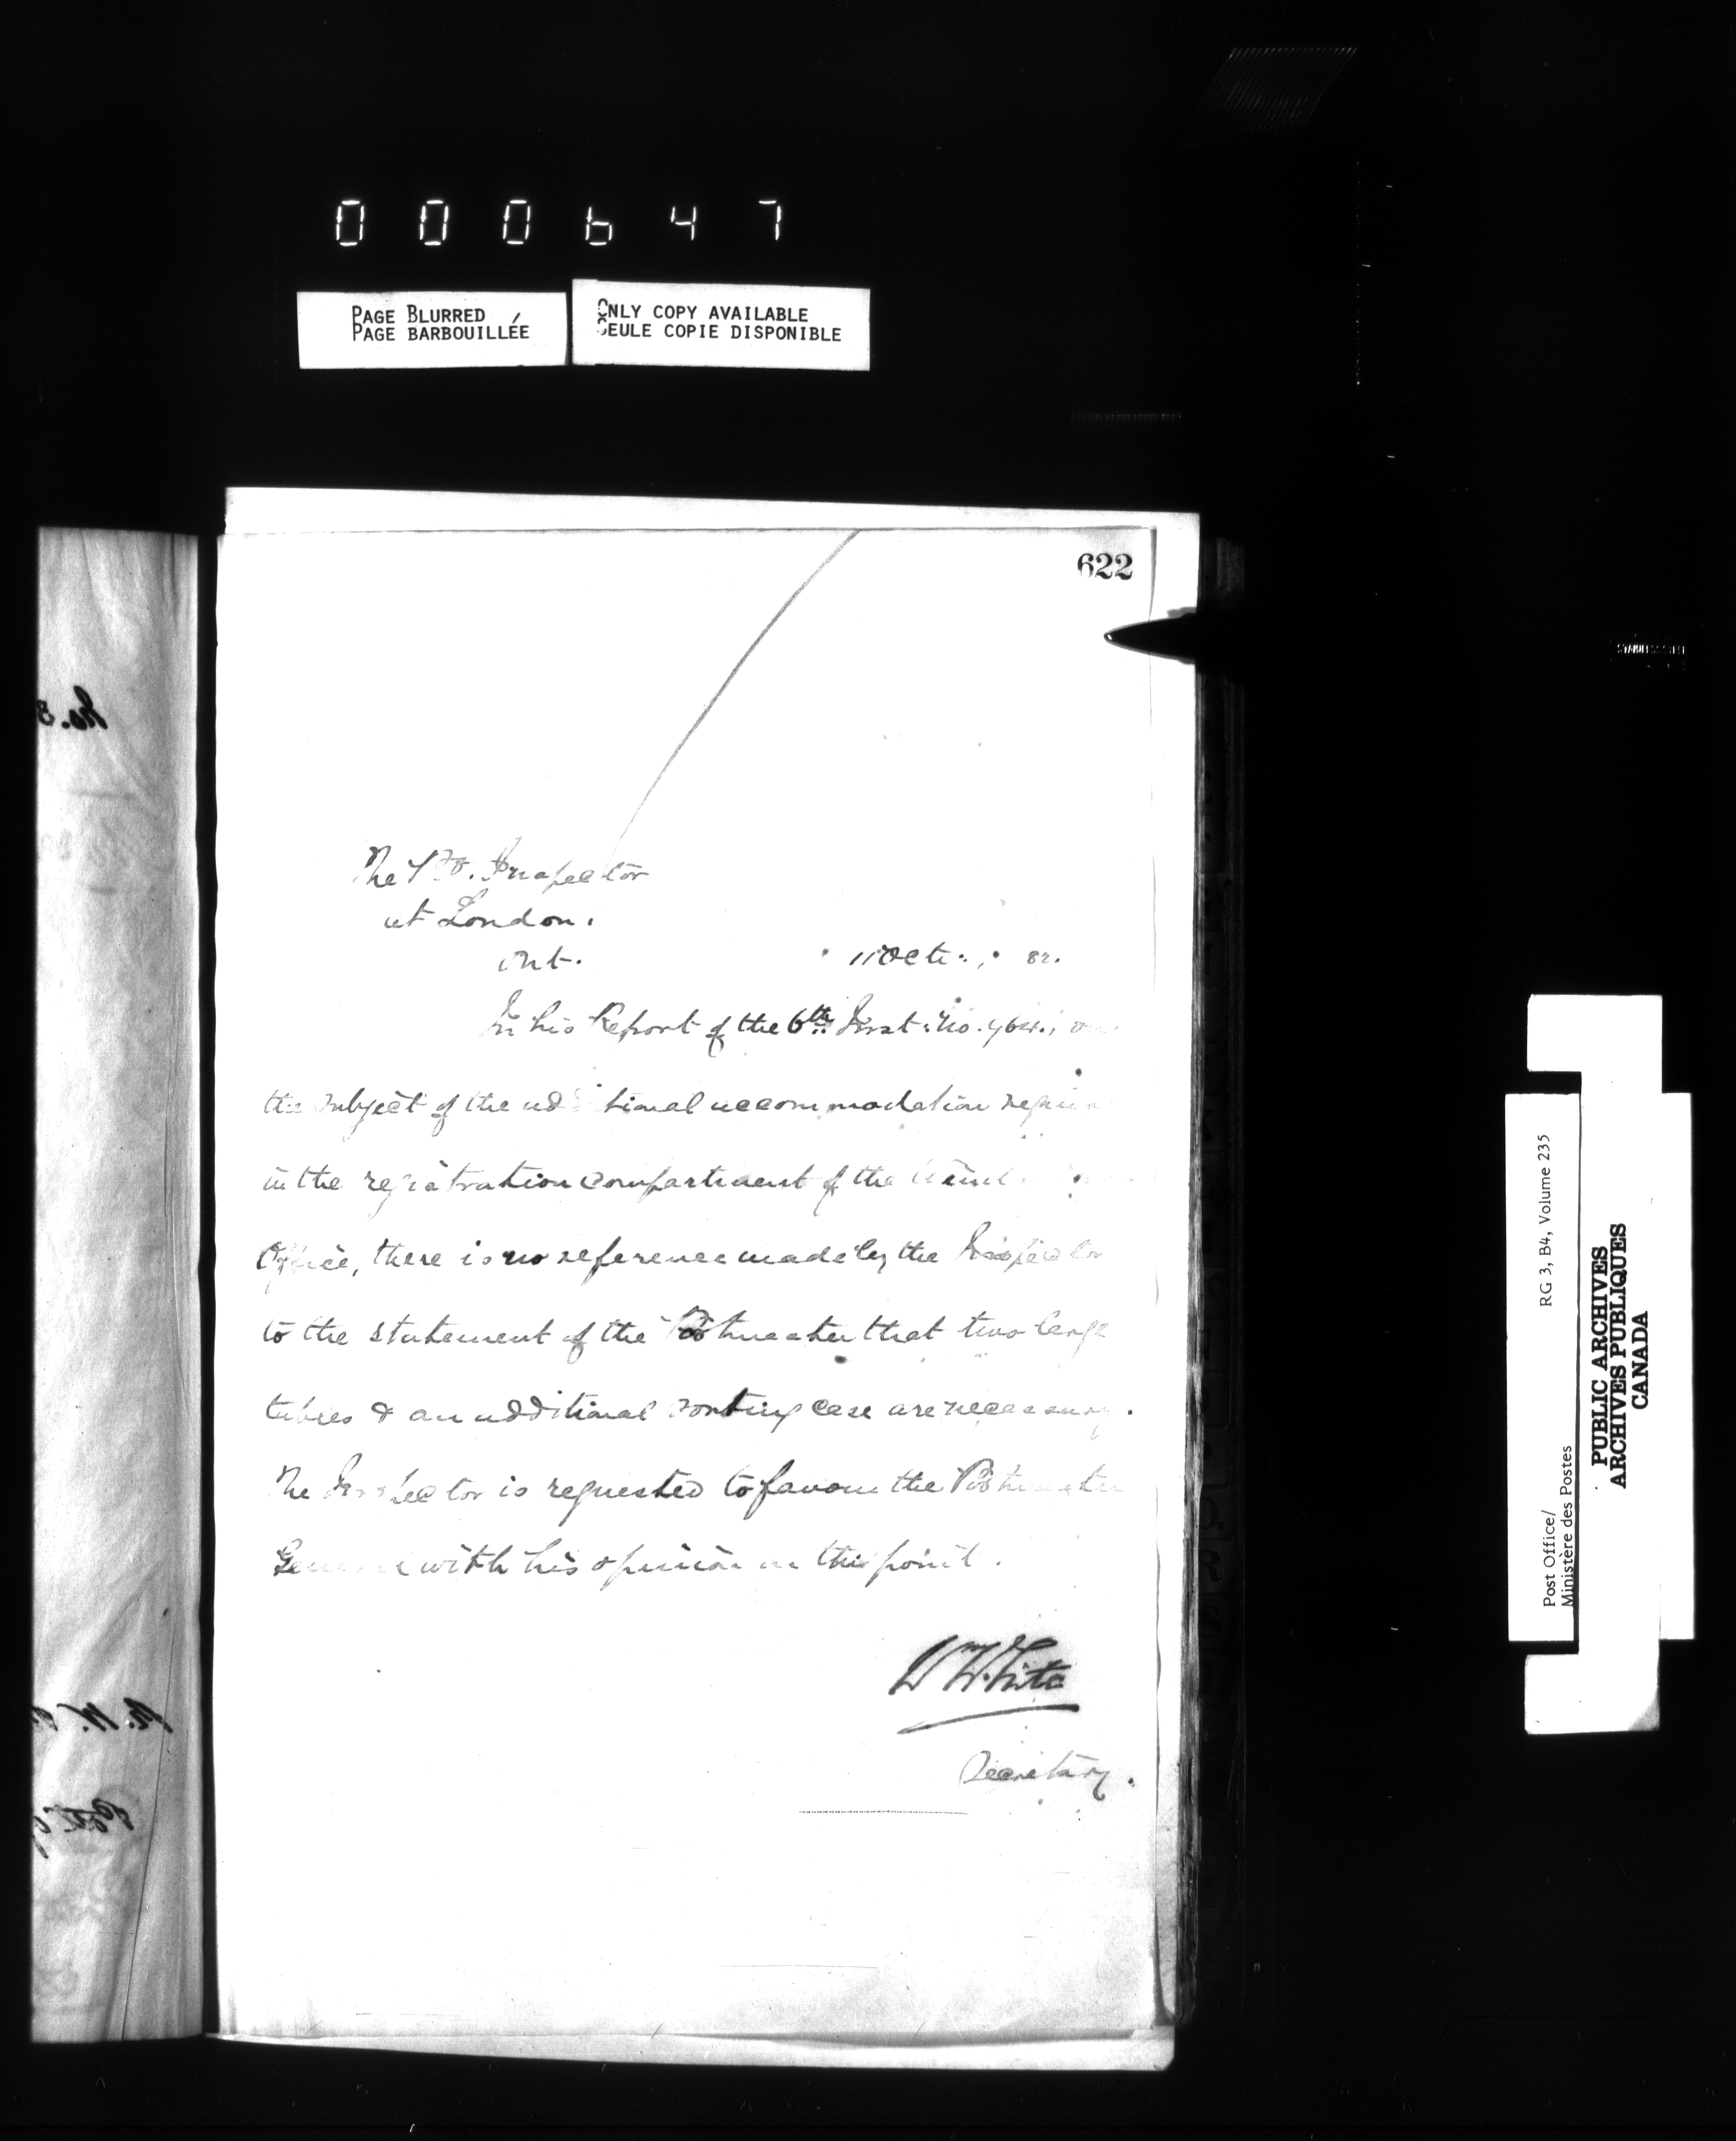 000647
PAGE BLURRED
PAGE BARBOUILLÉE
ONLY COPY AVAILABLE
SEULE COPIE DISPONIBLE
622
The P.O. Inspector
at London.
Ont.
11 Oct., 82.
In his Report of the 6th Inst: No. 964., on
the subject of the additional accommodation requir
in the registration compartment of the
Office, there is no reference made by the Inspector
to the statement of the Postmaster that two large
tables & an additional sorting case are necessary.
The Inspector is requested to favour the Postmaster
General with his opinion on this point.
Wm White
Secretary.
RG 3, B4, Volume 235
Post Office/
Ministère des Postes
PUBLIC ARCHIVES
ARCHIVES PUBLIQUES
CANADA